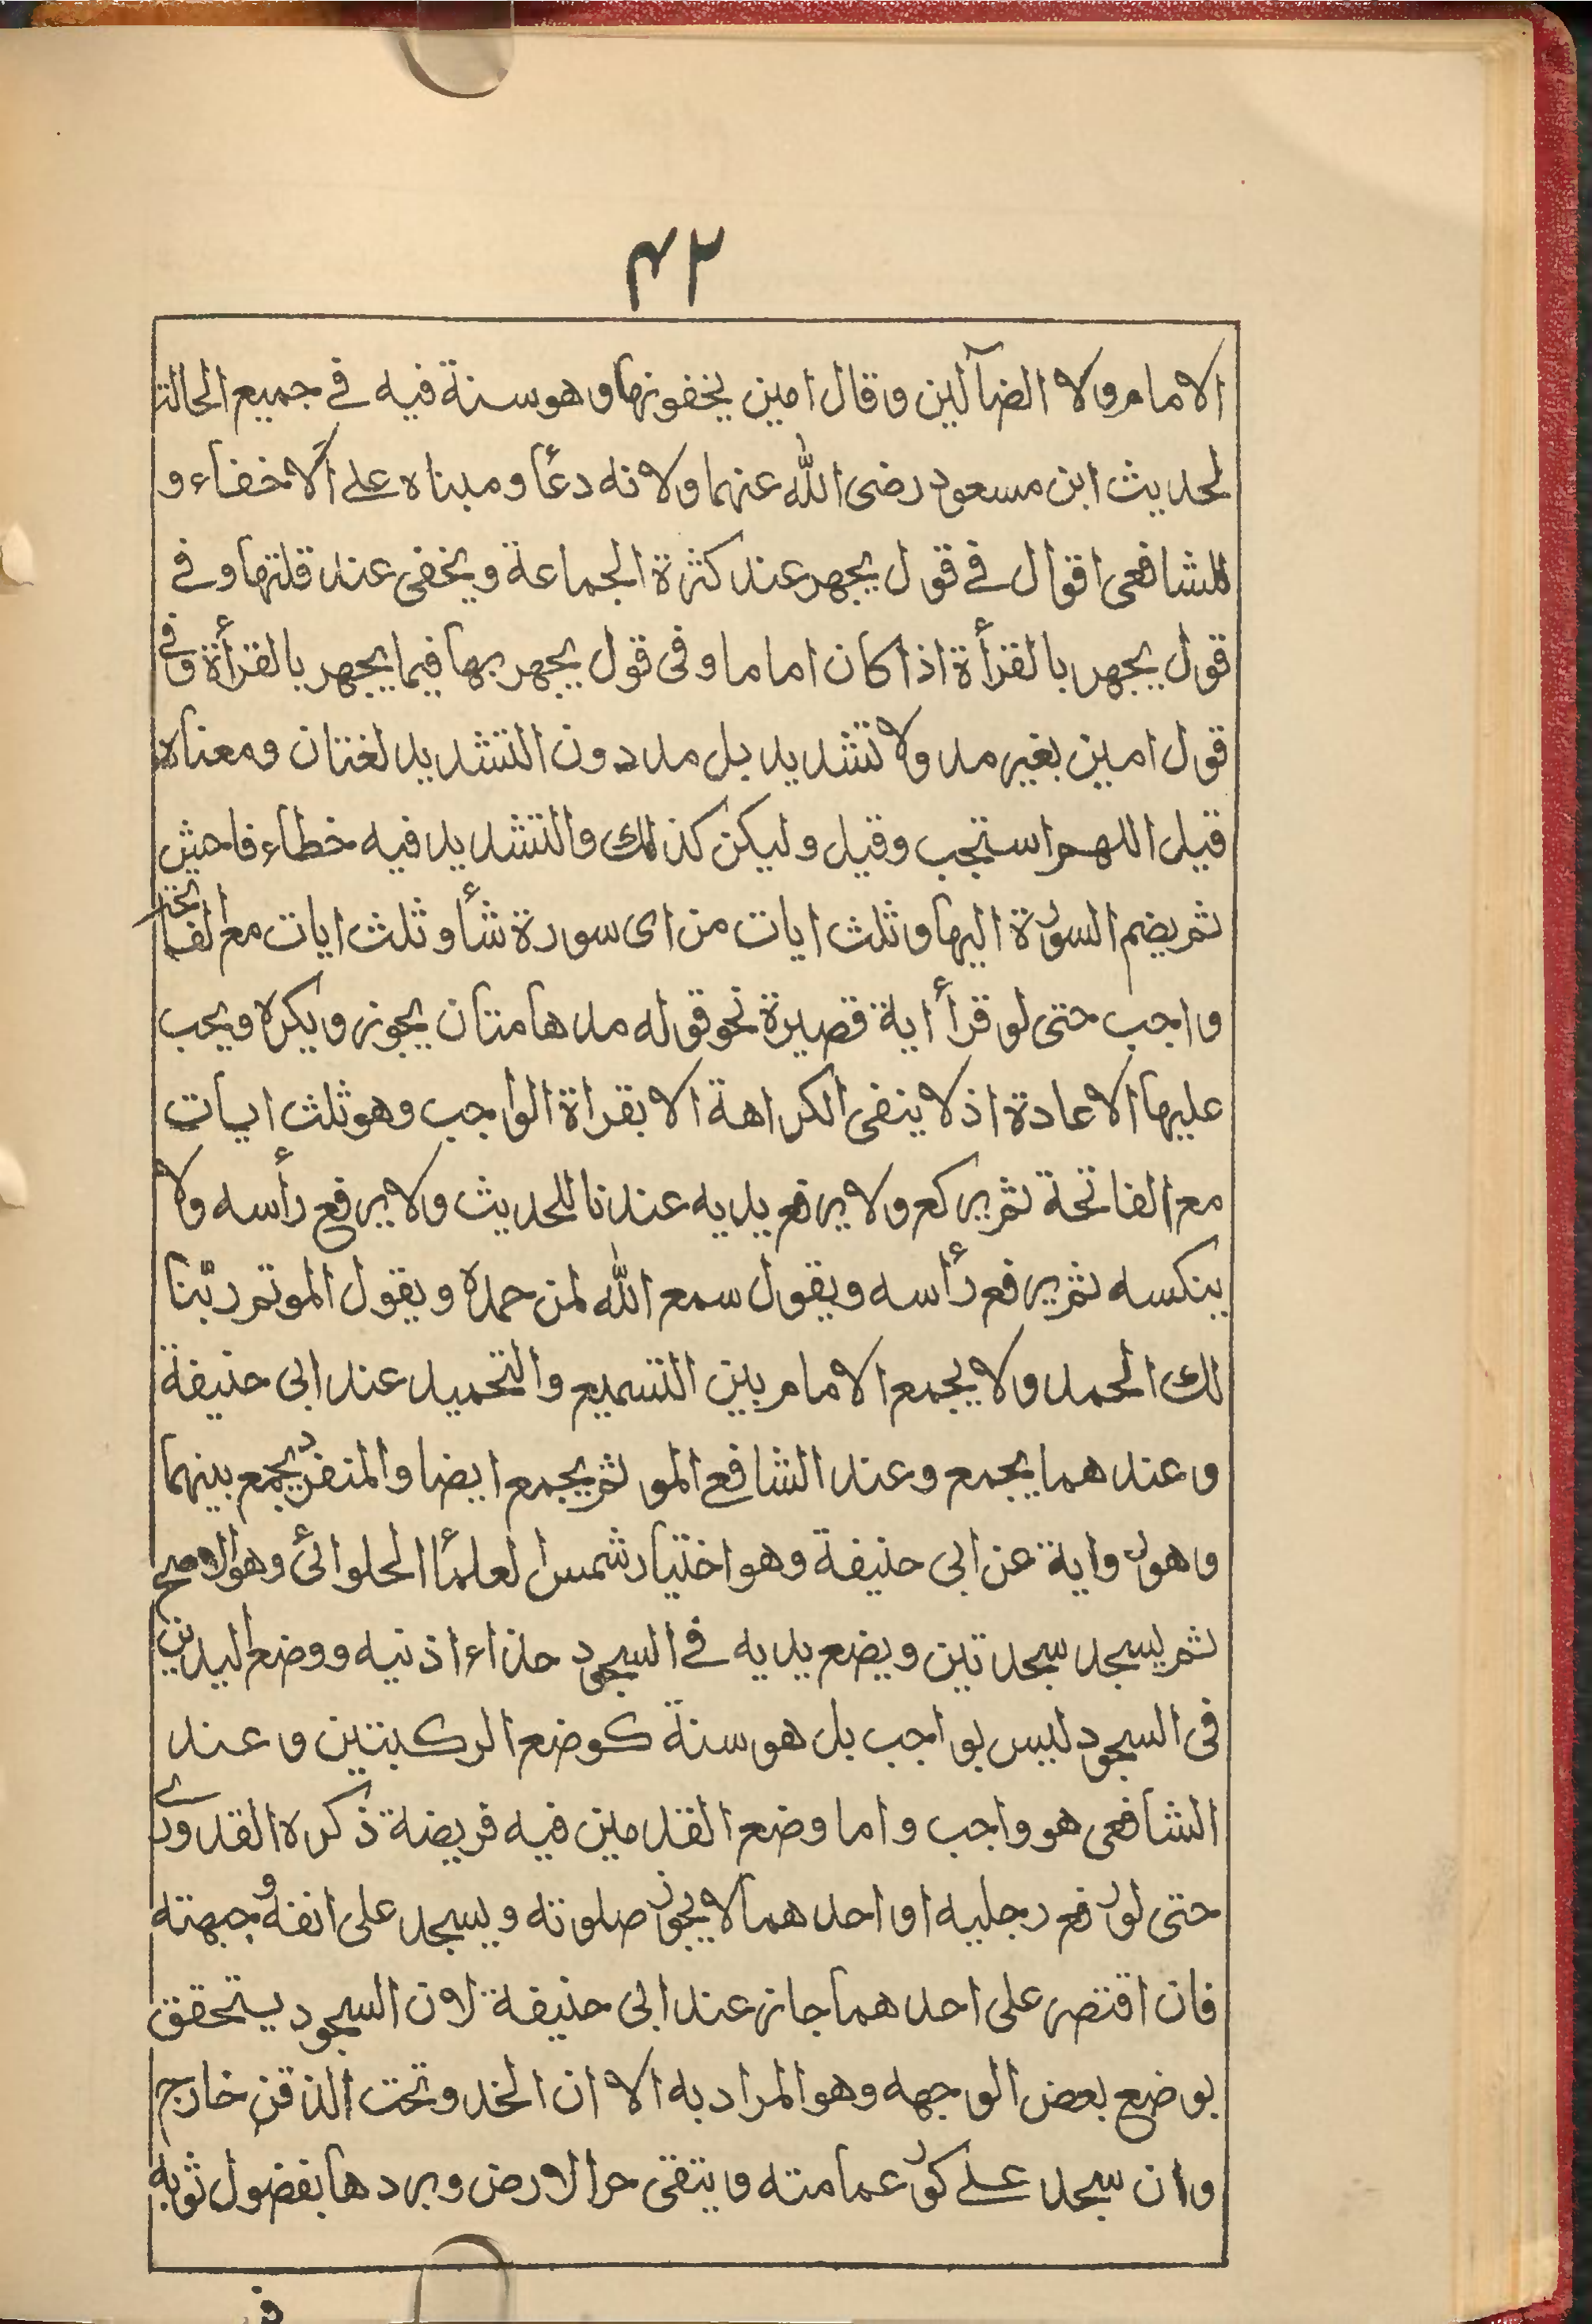 ٤٢
الامام ولا الضآلين وقال امين يخفونها وهو سنة فيه في جميع الحالة
لحديث ابن مسعود رضى الله عنهما ولانه دعأ ومبناه على الاخفاء و
للشافعى اقوال في قول يجهر عند كثرة الجماعة ويخفى عند قلتها وفي
قول يجهر بالقرأة اذا كان اماما وفى قول يجهر بها فيما يجهر بالقرأة وفى
قول امين بغير مد ولا تشديد بل مد دون التشديد لغتان ومعناه
قيل اللهم استجب وقيل وليكن كذلك والتشديد فيه خطاء فاحش
ثم يضم السورة اليها وثلث ايات من اى سورة شأ وثلث ايات مع الفاتحة
واجب حتى لو قرأ اية قصيرة نحو قوله مدهامتان يجوز ويكره ويجب
عليها الاعادة اذ لا ينفى الكراهة الا بقراة الواجب وهو ثلث ايات
مع الفاتحة ثم يركع ولا يرفع يديه عندنا للحديث ولا يرفع رأسه ولا
ينكسه ثم يرفع رأسه ويقول سمع الله لمن حمده ويقول الموتم ربّنا
لك الحمد ولا يجمع الامام بين التسميع والتحميد عند ابى حنيفة
وعندهما يجمع وعند الشافع الموتم يجمع ايضا والمنفرد يجمع بينهما
وهو رواية عن ابى حنيفة وهو اختيار شمس العلمأ الحلوائى وهو الاصح
ثم يسجد سجدتين ويضع يديه في السجود حذاء اذنيه ووضع اليدين
فى السجود ليس بواجب بل هو سنة كوضع الركبتين وعند
الشافعى هو واجب واما وضع القدمين فيه فريضة ذكره القدورے
حتى لو رفع رجليه او احدهما لا يجوز صلوته ويسجد على انفه و جبهته
فان اقتصر على احدهما جاز عند ابى حنيفة لان السجود يتحقق
بوضع بعض الوجهه وهو المراد به الا ان الخد وتحت الذقن خارج
وان سجد على كور عمامته ويتقى حر الارض وبردها بفضول ثوبه